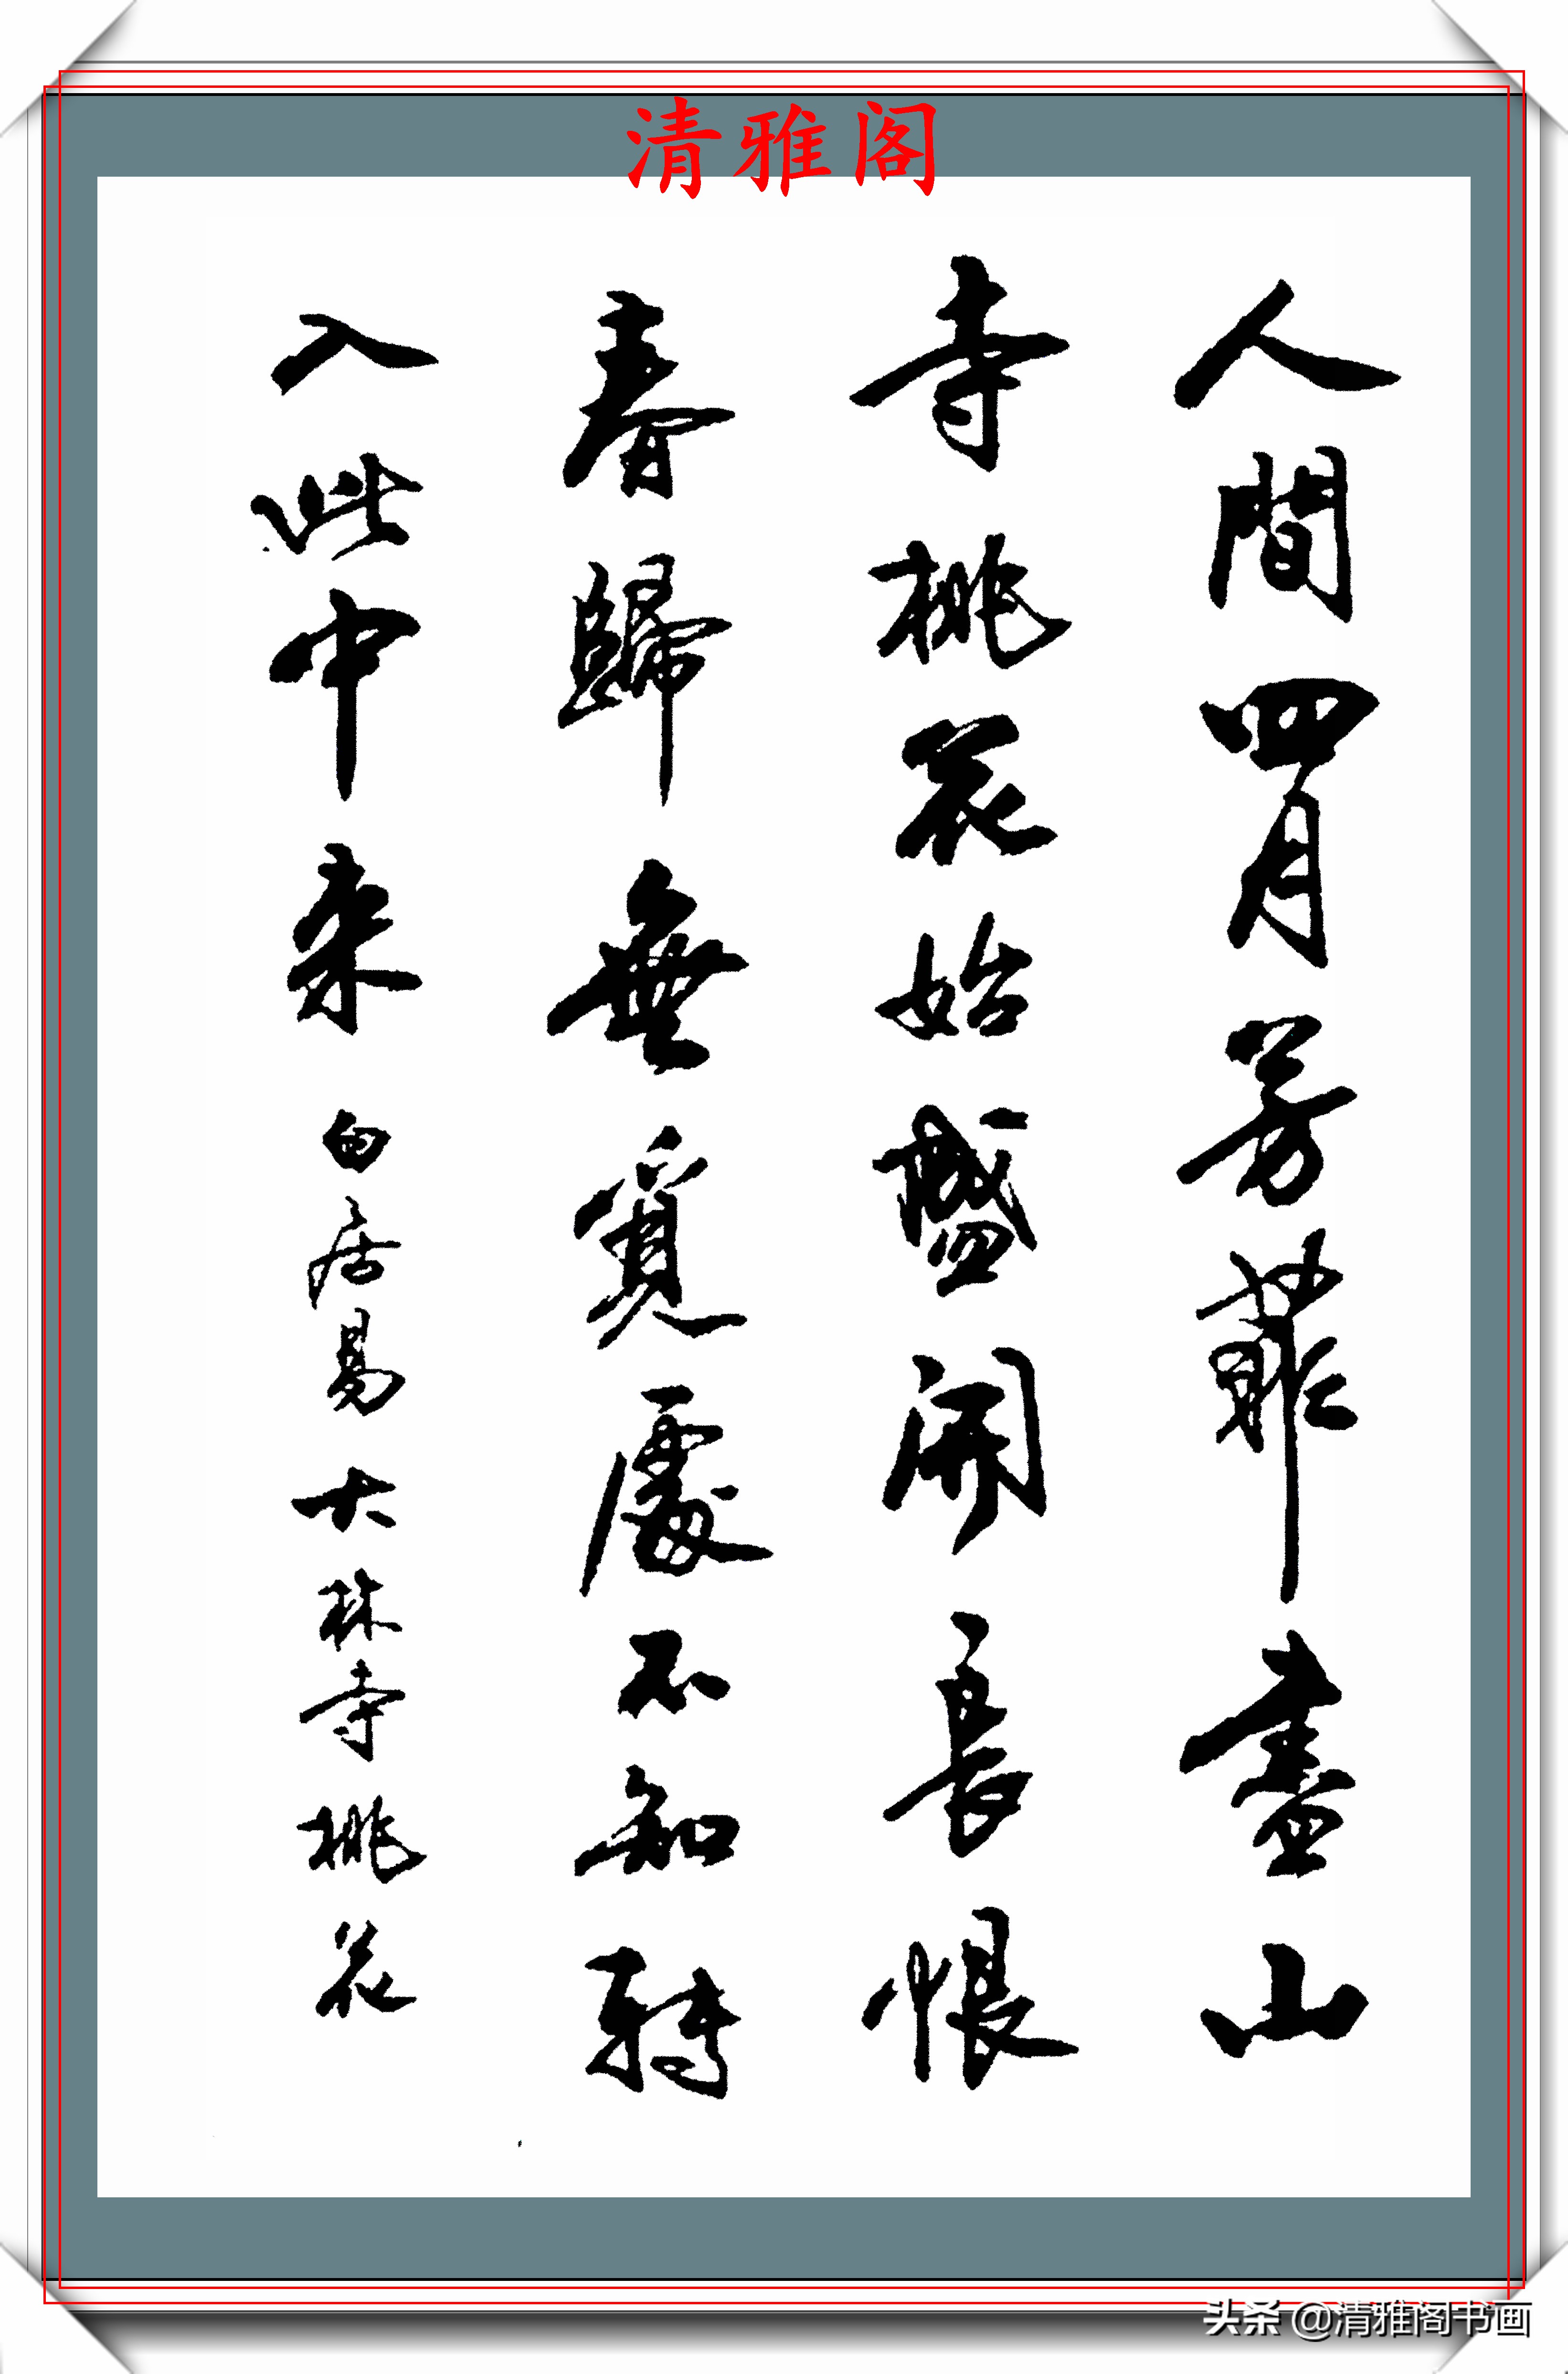 清雅阁
人間四月芳菲盡山
寺桃花始盛開長恨
春歸無覓處不知轉
入此中来白居易大林寺桃花
头条 @清雅阁书画